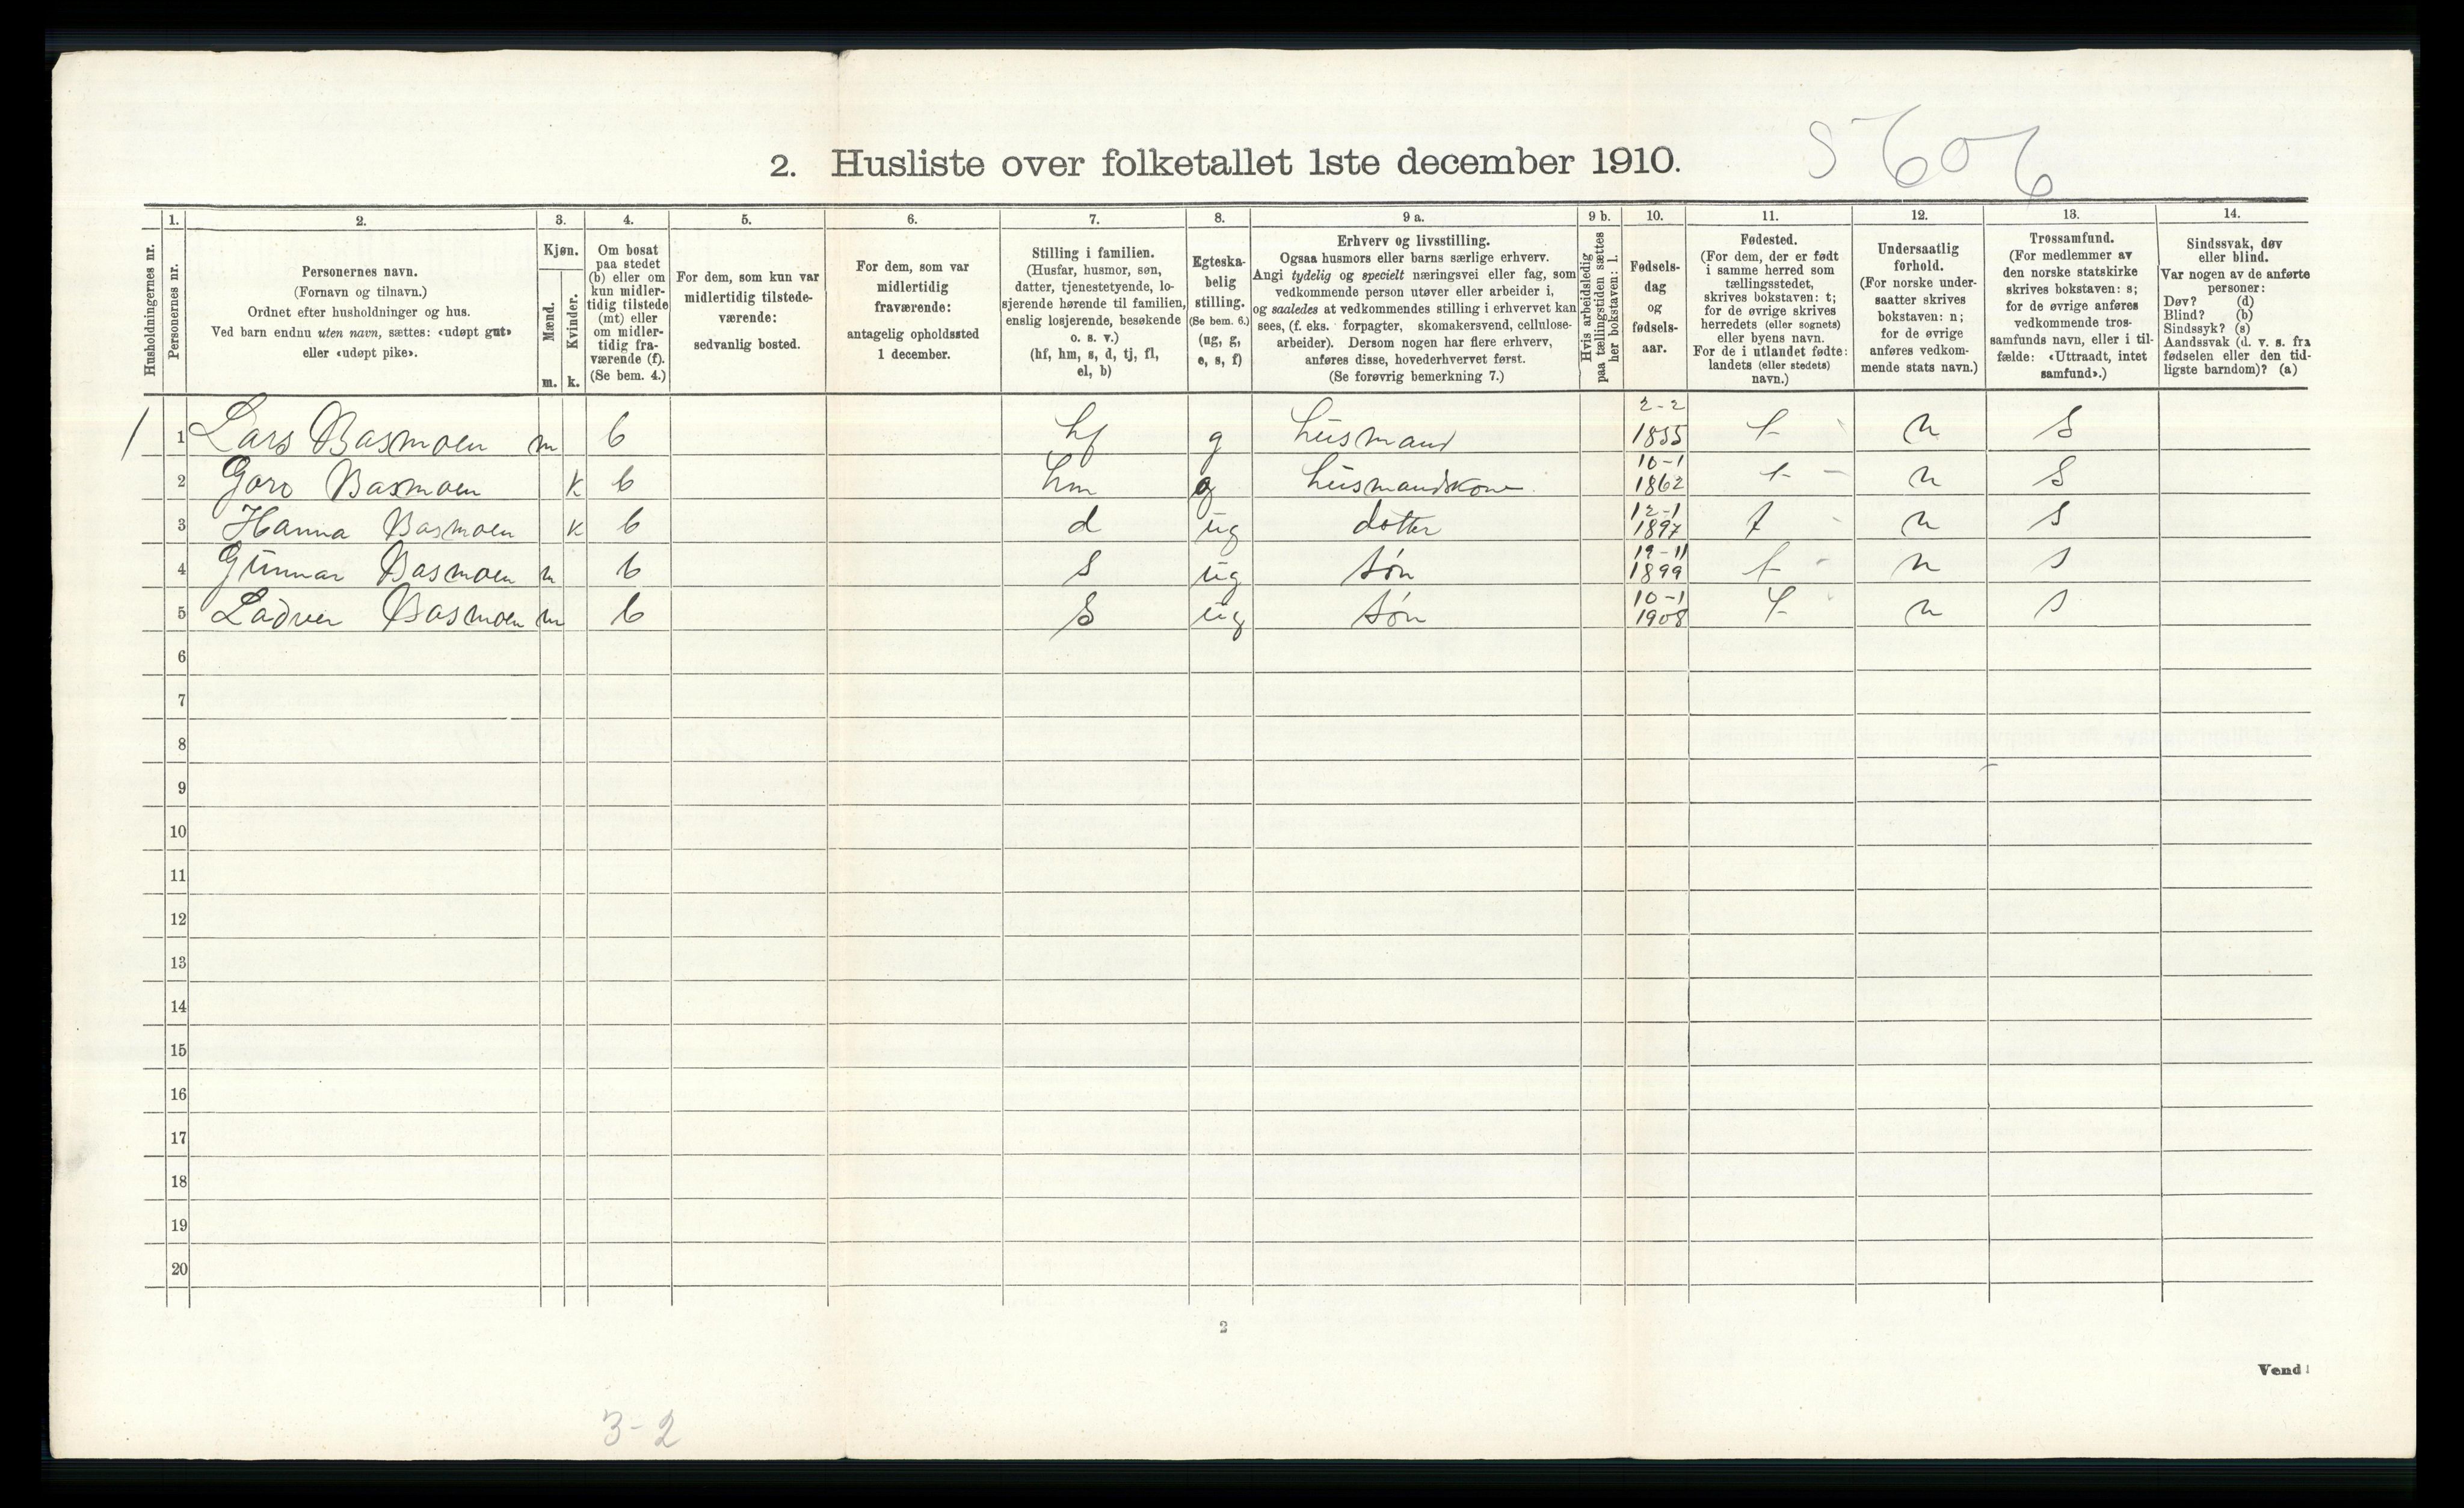 5606
2. Husliste over folketallet 1ste december 1910.
Husholdningernes nr.
1.
Personernes nr.
2.
Personernes navn.
(Fornavn og tilnavn.)
Ordnet efter husholdninger og hus.
Ved barn endnu uten navn, sættes: «udøpt gut»
eller «udøpt pike».
3.
Kjøn.
Mænd.
Kvinder.
m. k.
4.
Om bosat
paa stedet
(b) eller om
kun midler-
tidig tilstede
(mt) eller
om midler-
tidig fra-
værende (f).
(Se bem. 4.)
5.
For dem, som kun var
midlertidig tilstede-
værende:
sedvanlig bosted.
6.
For dem, som var
midlertidig
fraværende:
antagelig opholdssted
1 december.
7.
Stilling i familien.
(Husfar, husmor, søn,
datter, tjenestetyende, lo-
sjerende hørende til familien,
enslig losjerende, besøkende
o. s. v.)
(hf, hm, s, d, tj, fl,
el, b)
8.
Egteska-
belig
stilling.
(Se bem. 6.)
(ug, g,
e, s, f)
9 a.
Erhverv og livsstilling.
Ogsaa husmors eller barns særlige erhverv.
Angi tydelig og specielt næringsvei eller fag, som
vedkommende person utøver eller arbeider i,
og saaledes at vedkommendes stilling i erhvervet kan
sees, (f. eks. forpagter, skomakersvend, cellulose-
arbeider). Dersom nogen har flere erhverv,
anføres disse, hovederhvervet først.
(Se forøvrig bemerkning 7.)
9 b.
Hvis arbeidsledig
paa tællingstiden sættes
her bokstaven: l.
10.
Fødsels-
dag
og
fødsels-
aar.
11.
Fødested.
(For dem, der er født
i samme herred som
tællingsstedet,
skrives bokstaven: t;
for de øvrige skrives
herredets (eller sognets)
eller byens navn.
For de i utlandet fødte:
landets (eller stedets)
navn.)
12.
Undersaatlig
forhold.
(For norske under-
saatter skrives
bokstaven: n;
for de øvrige
anføres vedkom-
mende stats navn.)
13.
Trossamfund.
(For medlemmer av
den norske statskirke
skrives bokstaven: s;
for de øvrige anføres
vedkommende tros-
samfunds navn, eller i til-
fælde: «Uttraadt, intet
samfund».)
14.
Sindssvak, døv
eller blind.
Var nogen av de anførte
personer:
Døv? (d)
Blind? (b)
Sindssyk? (s)
Aandssvak (d. v. s. fra
fødselen eller den tid-
ligste barndom)? (a)
1 1 Lars Basmoen m b hf g husmand 2-2 1855 t n S
2 Goro Basmoen k b hm g husmandskone 10-1 1862 t n S
3 Hanna Basmoen k b d ug dotter 12-1 1897 t n S
4 Gunnar Basmoen m b s ug søn 19-11 1899 t n s
5 Ladver Basmoen m b s ug søn 10-1 1908 t n s
6
7
8
9
10
11
12
13
14
15
16
17
18
19
20
2
Vend!
3-2